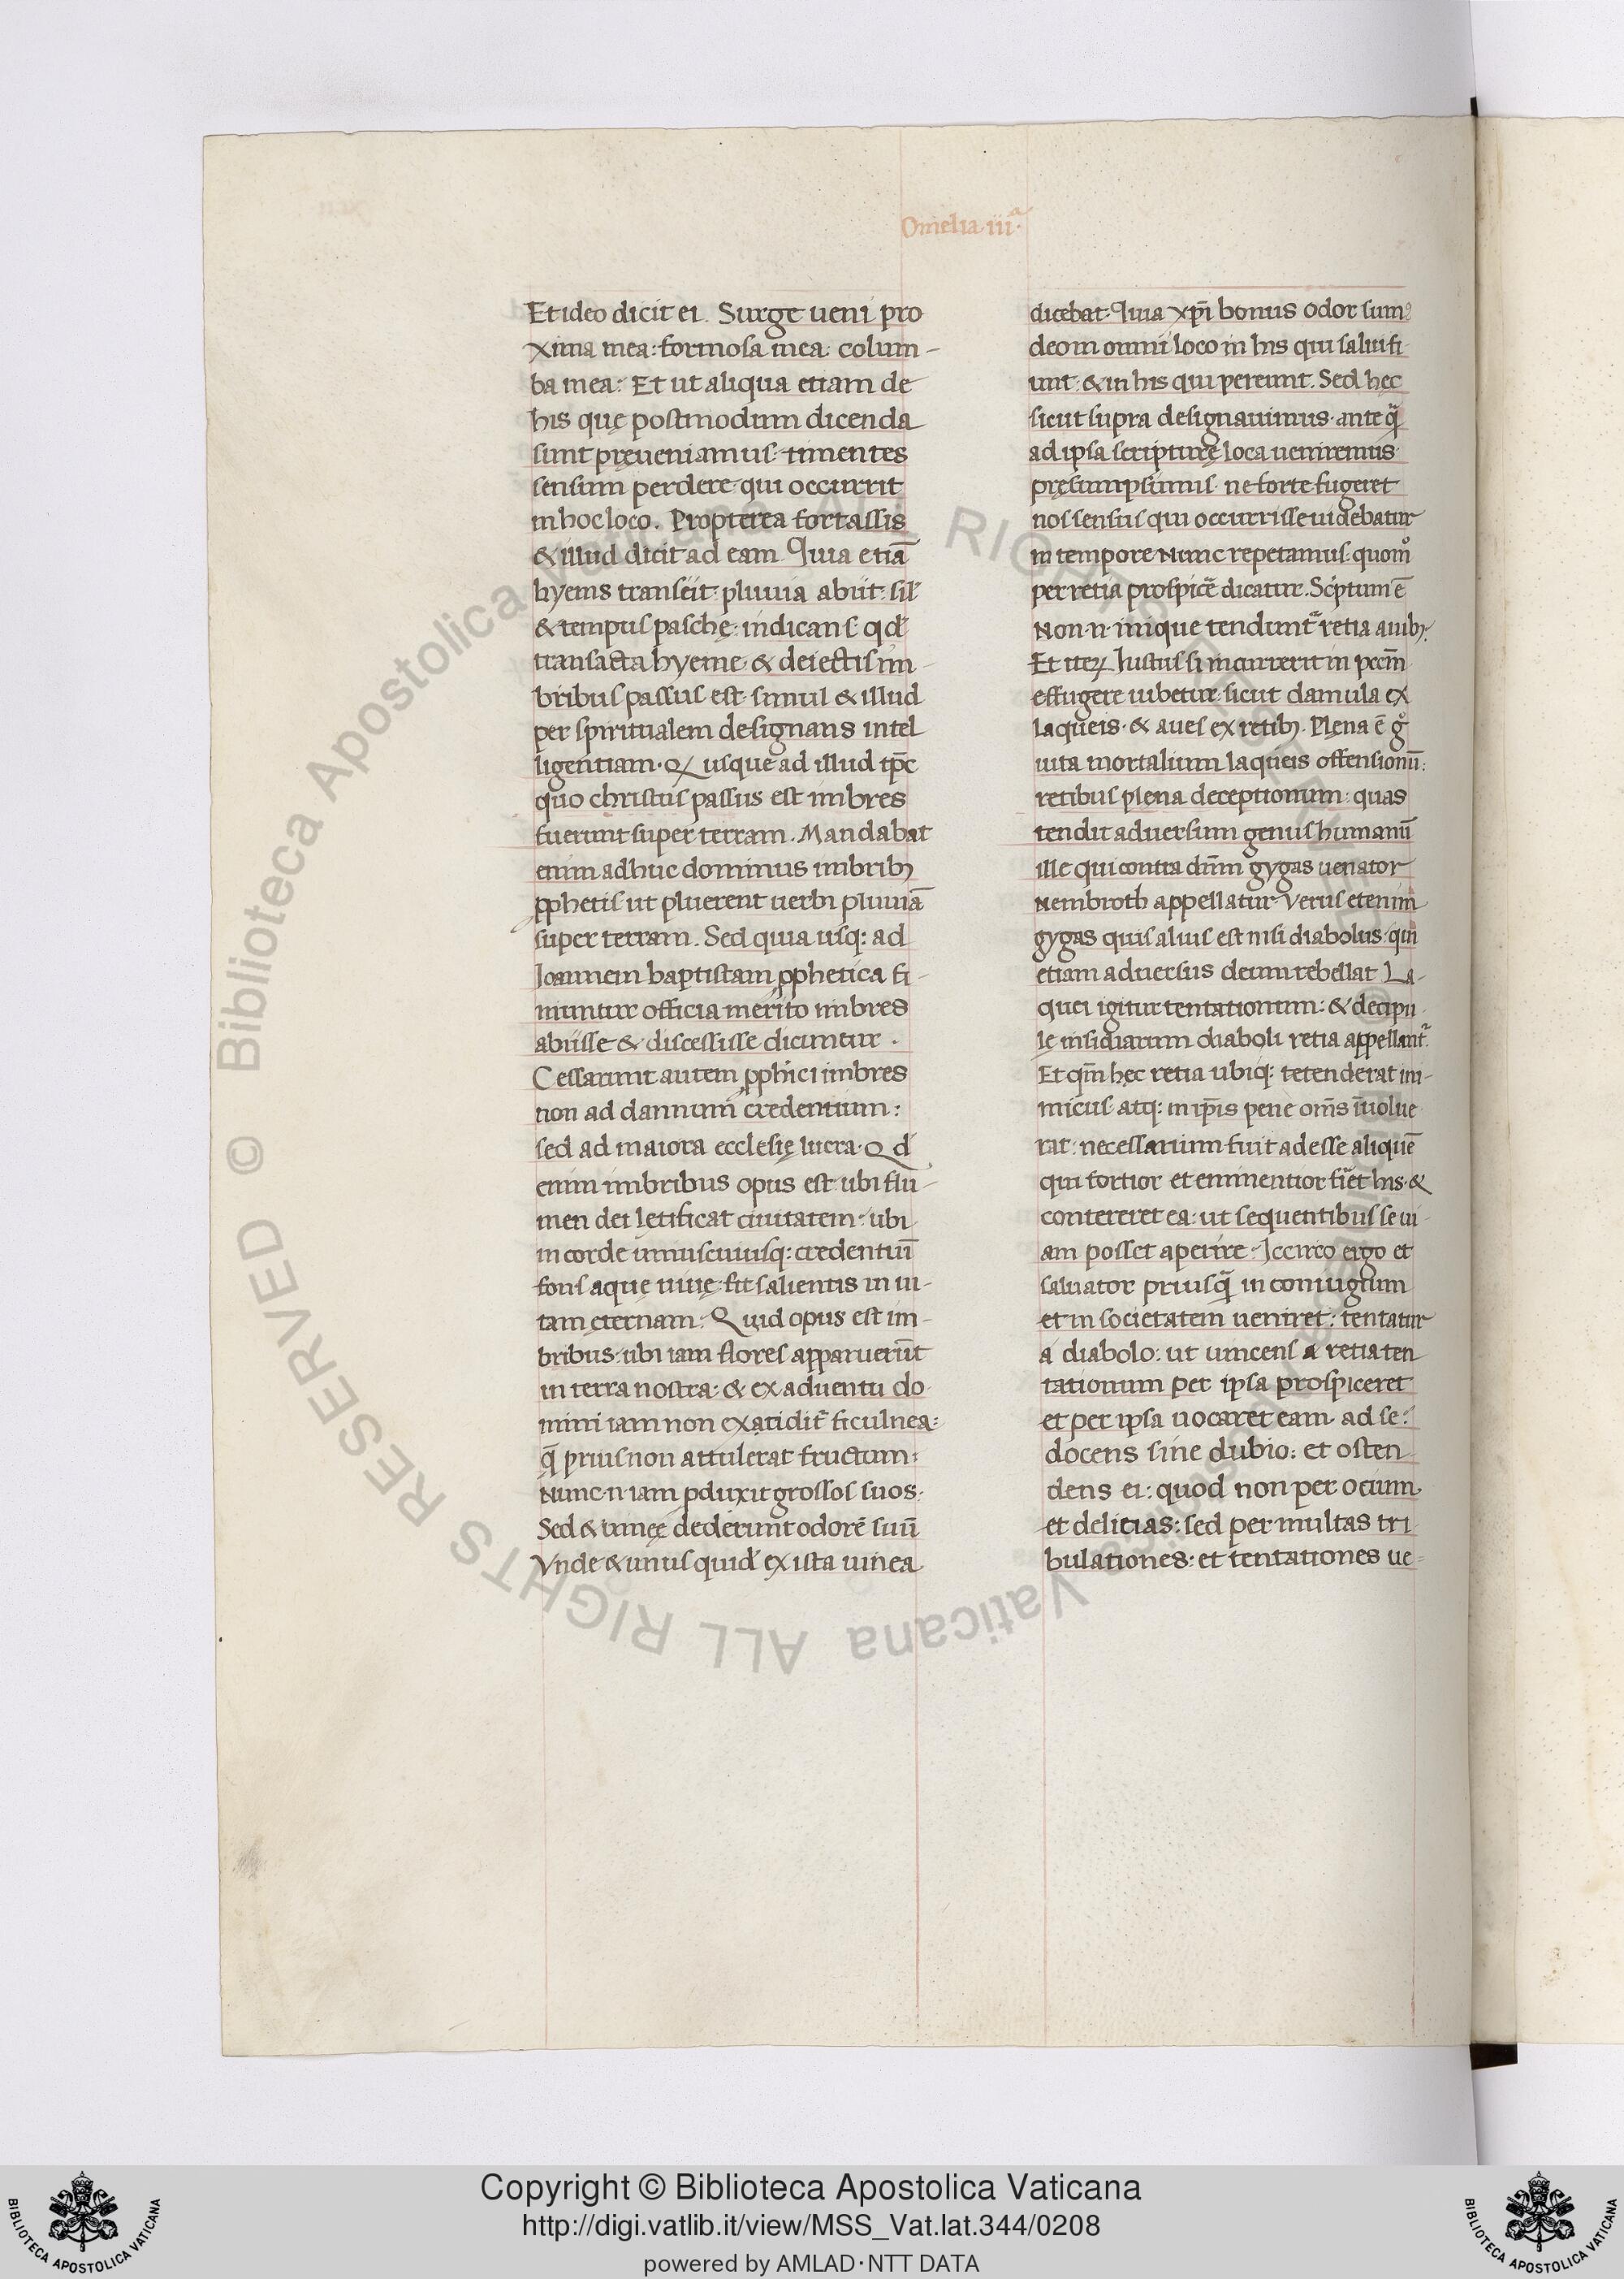 Omelia.iii.ª
Et ideo dicit ei. Surge ueni pro
xima mea: formosa mea: colum-
ba mea: Et ut aliqua etiam de
his quę postmodum dicenda
sunt pręueniamus: timentes
sensum perdere qui occurrit
in hoc loco. Propterea fortassis
& illud dicit ad eam. Quia etiā
hyems transiit: pluuia abiit: sil'
& tempus paschę: indicans qd'
transacta hyeme & deiectis im-
bribus passus est: simul & illud
per spiritualem designans intel
ligentiam. Q usque ad illud tp̄c
quo christus passus est imbres
fuerunt super terram. Mandabat
enim adhuc dominus imbribꝫ
ꝓphetis ut pluerent uerbi pluuiā
super terram. Sed quia usq: ad
Ioannem baptistam ꝓphetica fi-
niuntur officia merito imbres
abiisse & discessisse dicuntur.
Cessarunt autem ꝓphici imbres
non ad dannum credentium:
sed ad maiora ecclesię lucra. Qd'
enim imbribus opus est ubi flu-
men dei letificat ciuitatem: ubi
in corde uniuscuiusq: credentiū
fons aque uiuę fit salientis in ui-
tam ęternam: Quid opus est im-
bribus: ubi iam flores apparuerūt
in terra nostra: & ex aduentu do
mini iam non exatidit ficulnea:
q̄ prius non attulerat fructum:
Nunc.n.iam ꝓduxit grossos suos:
Sed & uineę dederunt odorē suū
Vnde & unus quid' ex ista uinea
dicebat. Quia xp̄i bonus odor sumꝰ
deo in omni loco in his qui salui fi
unt: & in his qui pereunt. Sed hęc
sicut supra designauimus. ante q̄
ad ipsa scripturę loca ueniremus
pręsumpsimus. ne forte fugeret
nos sensus qui occurrisse uidebatur
in tempore Nunc repetamus. quomº
per retia prospicē dicatur. Scptum ē
Non.n. inique tenduntᵃ retia auibꝫ.
Et iteꝝ Iustus si incurrerit in pccm̄
effugere iubetur sicut damula ex
laqueis. & aues ex retibꝫ. Plena ē gº
uita mortalium laqueis offensionū:
retibus plena deceptionum: quas
tendit aduersum genus humanū
ille qui contra dn̄m gygas uenator
Nembroth appellatur Verus etenim
gygas quis alius est nisi diabolus: qui
etiam aduersus deum rebellat La-
quei igitur tentationum: & decipu
lę insidiarum diaboli retia appellantᵃ.
Et qm̄ hęc retia ubiq: tetenderat ini-
micus atq: in ip̄is pene om̄s īuolue
rat: necessarium fuit adesse aliquē
qui fortior et eminentior fi͛et his. &
contereret ea: ut sequentibus se ui
am posset aperire. Iccirco ergo et
saluator priusq̄ in coniugium
et in societatem ueniret: tentatur
a diabolo: ut uincens a retia ten
tationum per ipsa prospiceret
et per ipsa uocaret eam ad se:
docens sine dubio: et osten
dens ei: quod non per ocium
et delicias: sed per multas tri
bulationes: et tentationes ue=
Copyright © Biblioteca Apostolica Vaticana
http://digi.vatlib.it/view/MSS_Vat.lat.344/0208
powered by AMLAD·NTT DATA
BIBLIOTECA APOSTOLICA VATICANA
BIBLIOTECA APOSTOLICA VATICANA
© Biblioteca Apostolica Vaticana ALL RIGHTS RESERVED © Biblioteca Apostolica Vaticana ALL RIGHTS RESERVED